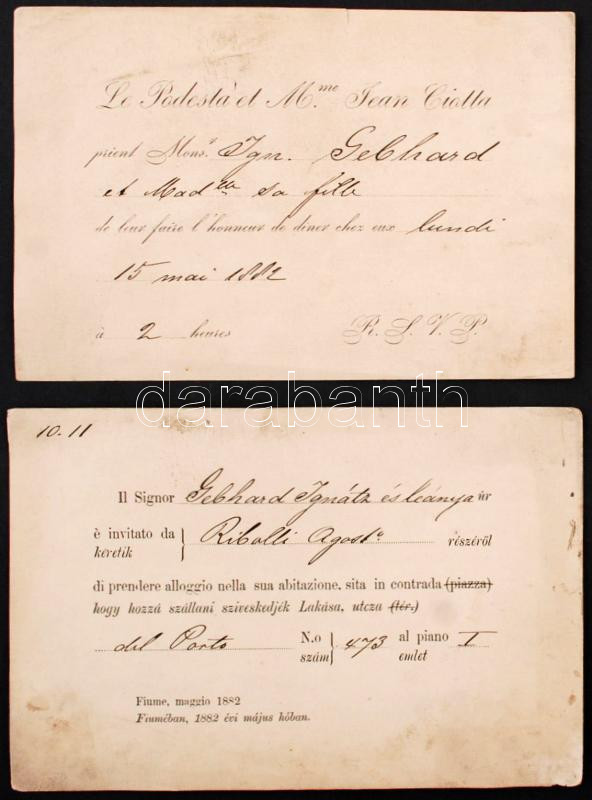 Le Podestà et M.me Jean Ciotta
prient Mons.r Ign. Gebhard
et Mad.lle sa fille
de leur faire l'honneur de diner chez eux lundi
15 mai 1882
à 2 heures R. S. V. P.
darabanth
10. 11
Il Signor Gebhard Ignátz és leánya úr
è invitato da Ribolli Agost.o részéröl
kéretik
di prendere alloggio nella sua abitazione, sita in contrada (piazza)
hogy hozzá szállani sziveskedjék Lakása, utcza (tér.)
del Porto N.o 473 al piano I
szám emlet
Fiume, maggio 1882
Fiuméban, 1882 évi május hóban.